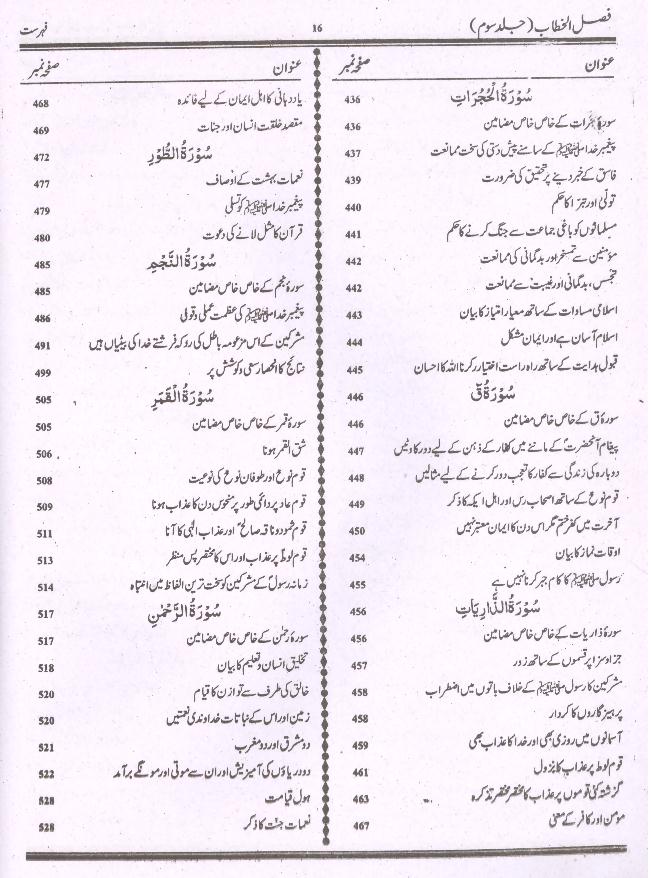 فصل الخطاب (جلد سوم) 16 فہرست
عنوان صفحہ نمبر
سُوْرَةُ الْحُجُرَاتِ 436
سورۂ حجرات کے خاص خاص مضامین 436
پیغمبر خدا ﷺ کے سامنے پیش دستی کی سخت ممانعت 437
فاسق کے خبر دینے پر تحقیق کی ضرورت 439
تولّیٰ اور تبرّا کا حکم 440
مسلمانوں کو باغی جماعت سے جنگ کرنے کا حکم 441
مؤمنین سے تمسخر اور بدگمانی کی ممانعت 442
تجسس، بدگمانی اور غیبت سے ممانعت 442
اسلامی مساوات کے ساتھ معیار امتیاز کا بیان 443
اسلام آسان ہے اور ایمان مشکل 444
قبول ہدایت کے ساتھ راہ راست اختیار کرنا اللہ کا احسان 445
سُوْرَةُ قٓ 446
سورۂ ق کے خاص خاص مضامین 446
پیغام آنحضرتؐ کے ماننے میں کفار کے ذہن کے لیے دو رکاوٹیں 447
دوبارہ کی زندگی سے کفار کا تعجب دور کرنے کے لیے مثالیں 448
قوم نوحؑ کے ساتھ اصحاب رس اور اہل ایکہ کا ذکر 449
آخرت میں کفر ختم مگر اس دن کا ایمان معتبر نہیں 450
اوقات نماز کا بیان 454
رسول ﷺ کا کام جبر کرنا نہیں ہے 455
سُوْرَةُ الذّٰارِيَاتِ 456
سورۂ ذاریات کے خاص خاص مضامین 456
جزا و سزا پر قسموں کے ساتھ زور 457
مشرکین کا رسول ﷺ کے خلاف باتوں میں اضطراب 458
پرہیزگاروں کا کردار 458
آسمانوں میں روزی بھی اور خدا کا عذاب بھی 459
قوم لوط پر عذاب کا نزول 461
گزشتہ کئی قوموں پر عذاب کا مختصر مختصر تذکرہ 463
مومن اور کافر کے معنی 467
عنوان صفحہ نمبر
یاد دہانی کا اہل ایمان کے لیے فائدہ 468
مقصد خلقت انسان اور جنات 469
سُوْرَةُ الطُّوْرِ 472
نعمات بہشت کے اوصاف 477
پیغمبر خدا ﷺ کو تسلی 479
قرآن کا مثل لانے کی دعوت 480
سُوْرَةُ النَّجْمِ 485
سورۂ نجم کے خاص خاص مضامین 485
پیغمبر خدا ﷺ کی عظمت عملی و قولی 486
مشرکین کے اس مزعومہ باطل کی رو کہ فرشتے خدا کی بیٹیاں ہیں 491
نتائج کا انحصار سعی و کوشش پر 499
سُوْرَةُ الْقَمَرِ 505
سورۂ قمر کے خاص خاص مضامین 505
شق القمر ہونا 506
قوم نوحؑ اور طوفان نوحؑ کی نوعیت 508
قوم عاد پر دائمی طور پر منحوس دن کا عذاب ہونا 509
قوم ثمود و ناقہ صالحؑ اور عذاب الٰہی کا آنا 511
قوم لوط پر عذاب اور اس کا مختصر پس منظر 513
زمانہ رسولؐ کے مشرکین کو سخت ترین الفاظ میں انتباہ 514
سُوْرَةُ الرَّحْمٰنِ 517
سورۂ رحمٰن کے خاص خاص مضامین 517
تخلیق انسان و تعلیم کا بیان 518
خالق کی طرف سے توازن کا قیام 520
زمین اور اس کے نباتات خداوندی نعمتیں 520
دو مشرق اور دو مغرب 521
دو دریاؤں کی آمیزش اور ان سے موتی اور مونگے برآمد 522
ہول قیامت 528
نعمات جنت کا ذکر 528